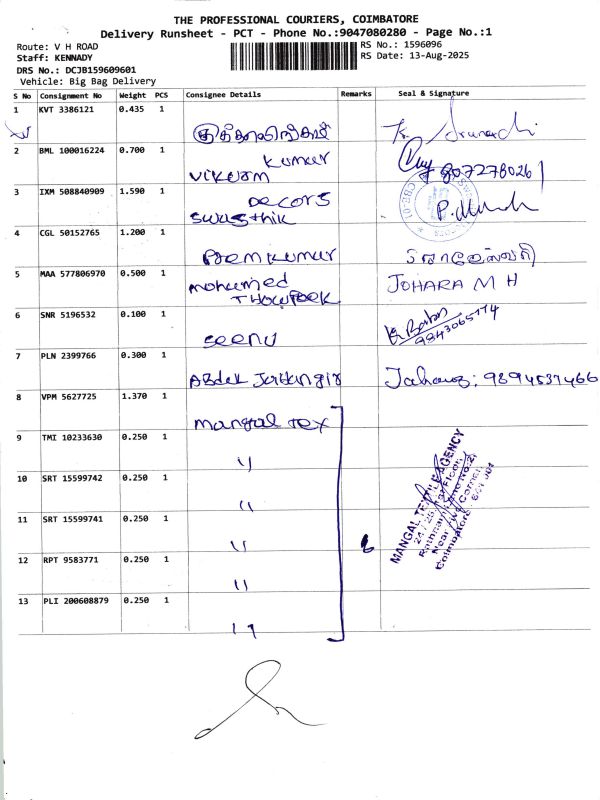 THE PROFESSIONAL COURIERS, COIMBATORE
Delivery Runsheet - PCT - Phone No.:9047080280 - Page No.:1
Route: V H ROAD
RS No.: 1596096
Staff: KENNADY
RS Date: 13-Aug-2025
DRS No.: DCJB159609601
Vehicle: Big Bag Delivery
S No Consignment No Weight PCS Consignee Details Remarks Seal & Signature
1 KVT 3386121 0.435 1
2 BML 100016224 0.700 1 Kumar
Vikram
3 IXM 508840909 1.590 1 Decors
Swasthik
4 CGL 50152765 1.200 1 Prem Kumar
5 MAA 577806970 0.500 1 mohamed JOHARA M H
Thowfeek
6 SNR 5196532 0.100 1 seenu
9843065774
7 PLN 2399766 0.300 1 Abdul
8 VPM 5627725 1.370 1 mangal tex
9 TMI 10233630 0.250 1 "
10 SRT 15599742 0.250 1 "
11 SRT 15599741 0.250 1 " 6
12 RPT 9583771 0.250 1 "
13 PLI 200608879 0.250 1 "
MANGAL TEXTILE AGENCY
Coimbatore